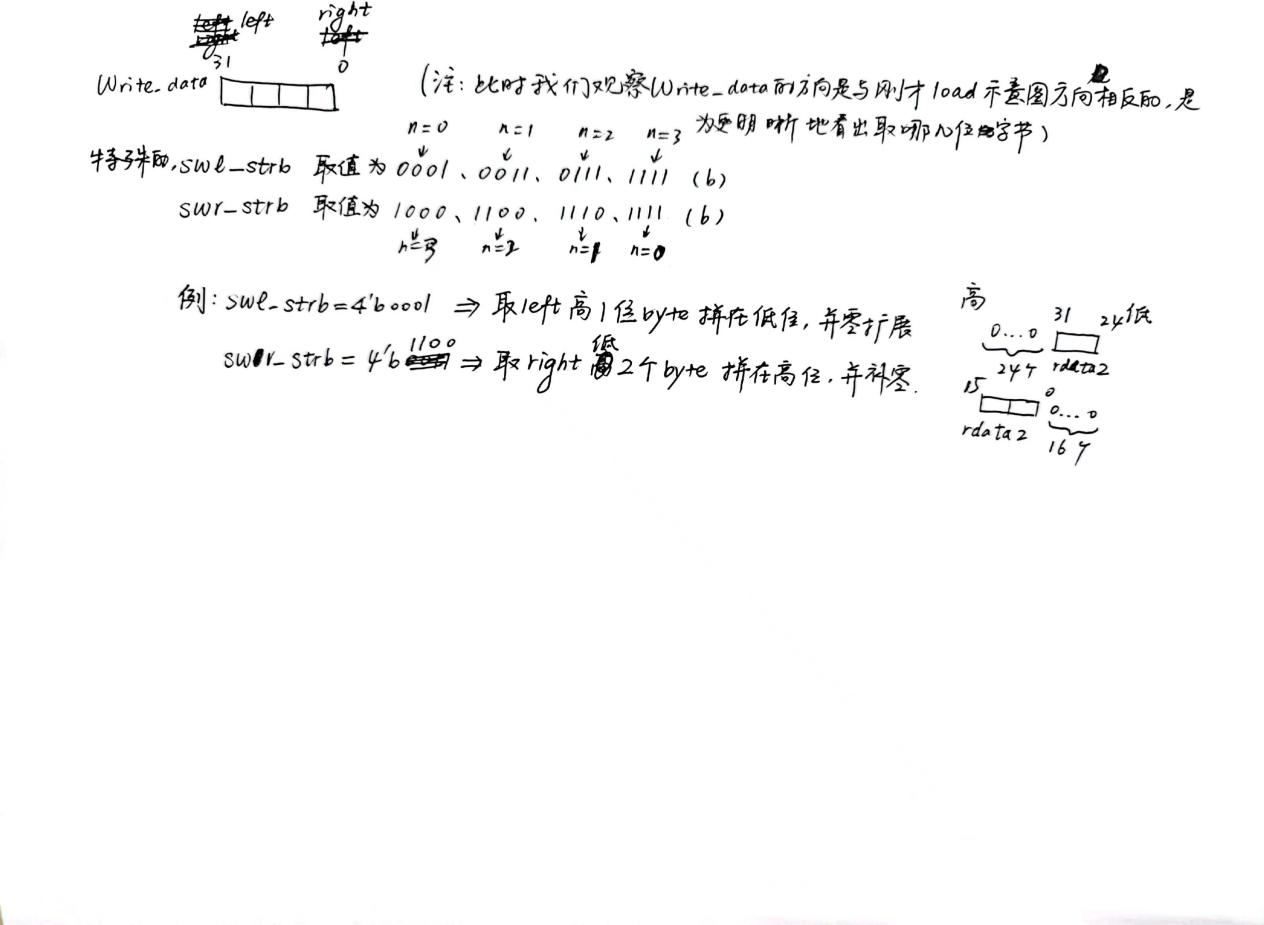 left right
31 0
Write_data (注：此时我们观察Write_data的方向是与刚才load示意图方向相反的，是
为更明晰地看出取哪几位字节)
n=0 n=1 n=2 n=3
特殊的，swl_strb 取值为 0001、0011、0111、1111 (b)
swr_strb 取值为 1000、1100、1110、1111 (b)
n=3 n=2 n=1 n=0
例：swl_strb=4'b0001 ⇒ 取left高1位byte拼在低位，并零扩展
swr_strb = 4'b1100 ⇒ 取right低2个byte拼在高位，并补零.
高 31 24 低
0...0
24个 rdata2
15 0
0...0
rdata2 16个